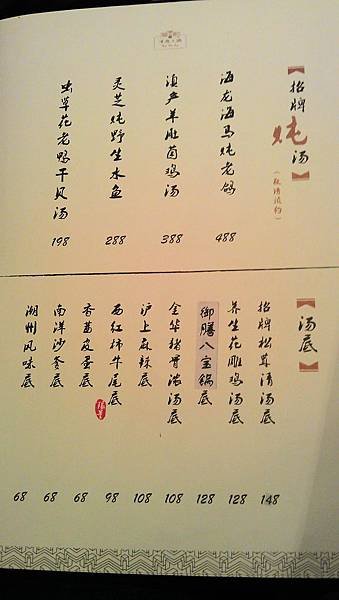 【招牌炖汤】
(敬请预约)
海龙海马炖老鸽
488
滇产羊肚菌鸡汤
388
灵芝炖野生水鱼
288
虫草花老鸭干贝汤
198
【汤底】
招牌松茸清汤底
148
养生花雕鸡汤底
128
御膳八宝锅底
128
金华猪骨浓汤底
108
沪上麻辣底
108
西红柿牛尾底
98
香菖皮蛋底
68
南洋沙爹底
68
潮州风味底
68